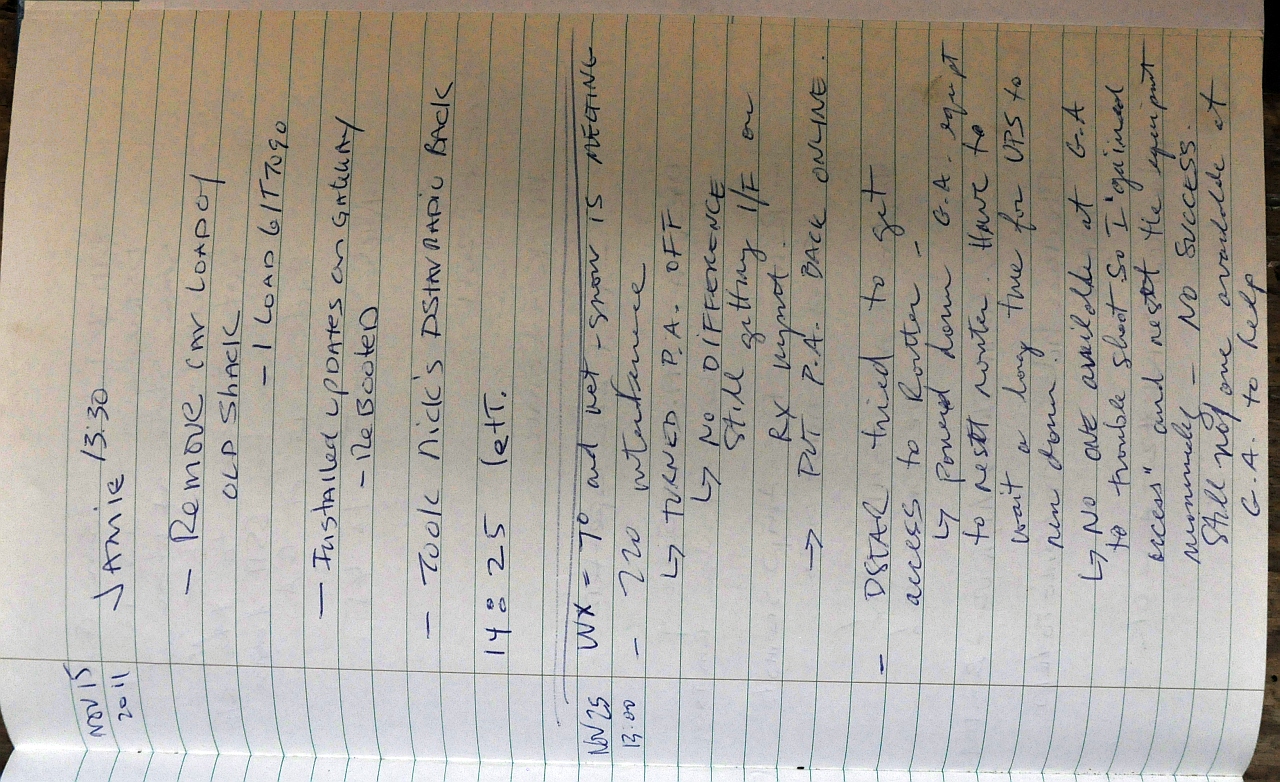 NOV 15
2011
JAMIE 13:30
- Remove car load of
OLD SHACK
- 1 LOAD 6/T 7090
- Installed UPDATES on GATEWAY
- ReBooted
- Took Nick's DSTAR RADIO BACK
14:25 left.
Nov 25
13:00
WX = 7° and wet - snow is MELTING
- 220 interference
↳ TURNED P.A. OFF
↳ NO DIFFERENCE
Still getting I/F on
RX input.
→ PUT P.A. BACK ONLINE.
- DSTAR tried to get
access to Router -
↳ Powered down G.A. equipt
to reset router. Have to
wait a long time for UPS to
run down.
↳ No one available at G.A
to trouble shoot so I "gained
access" and reset the equipmt
manually - No SUCCESS.
Still no one available at
G.A. to help